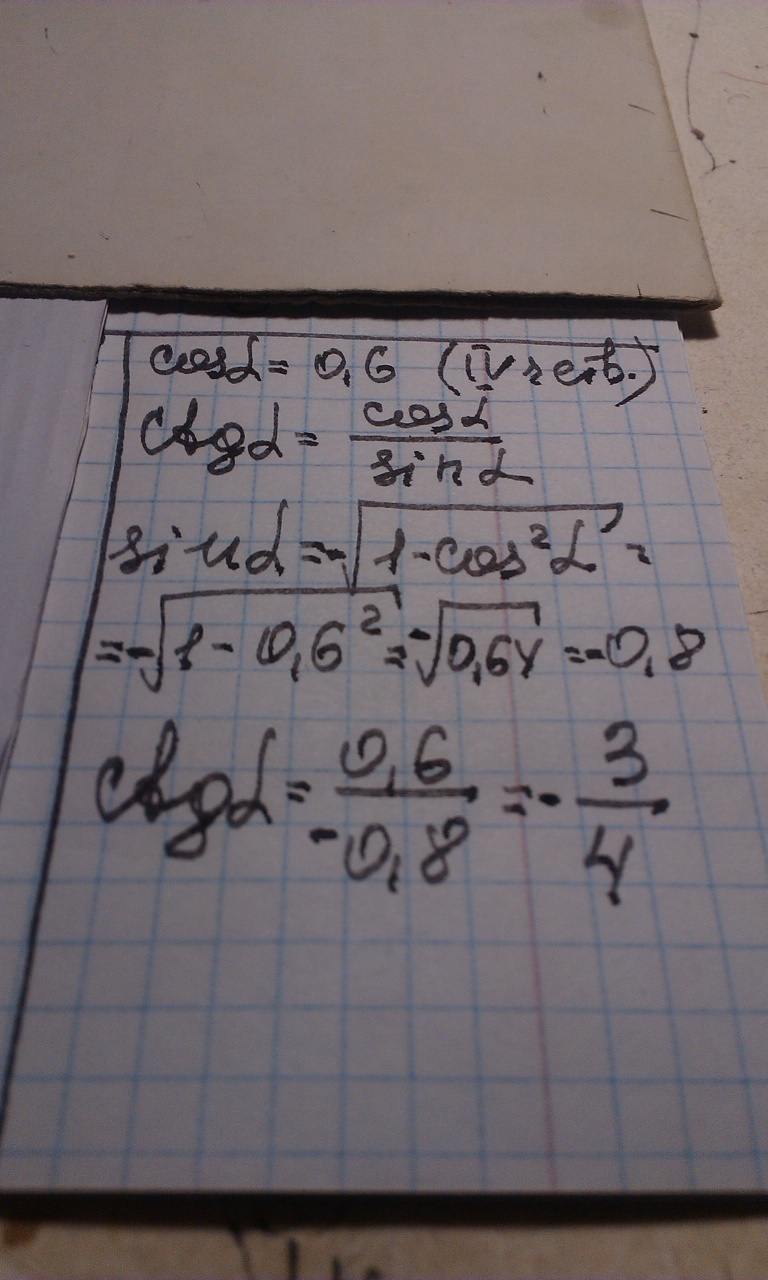 cosα = 0,6 (IV четв.)
ctgα = cosα / sinα
sinα = -√(1-cos²α) =
= -√(1-0,6²) = -√0,64 = -0,8
ctgα = 0,6 / -0,8 = - 3/4